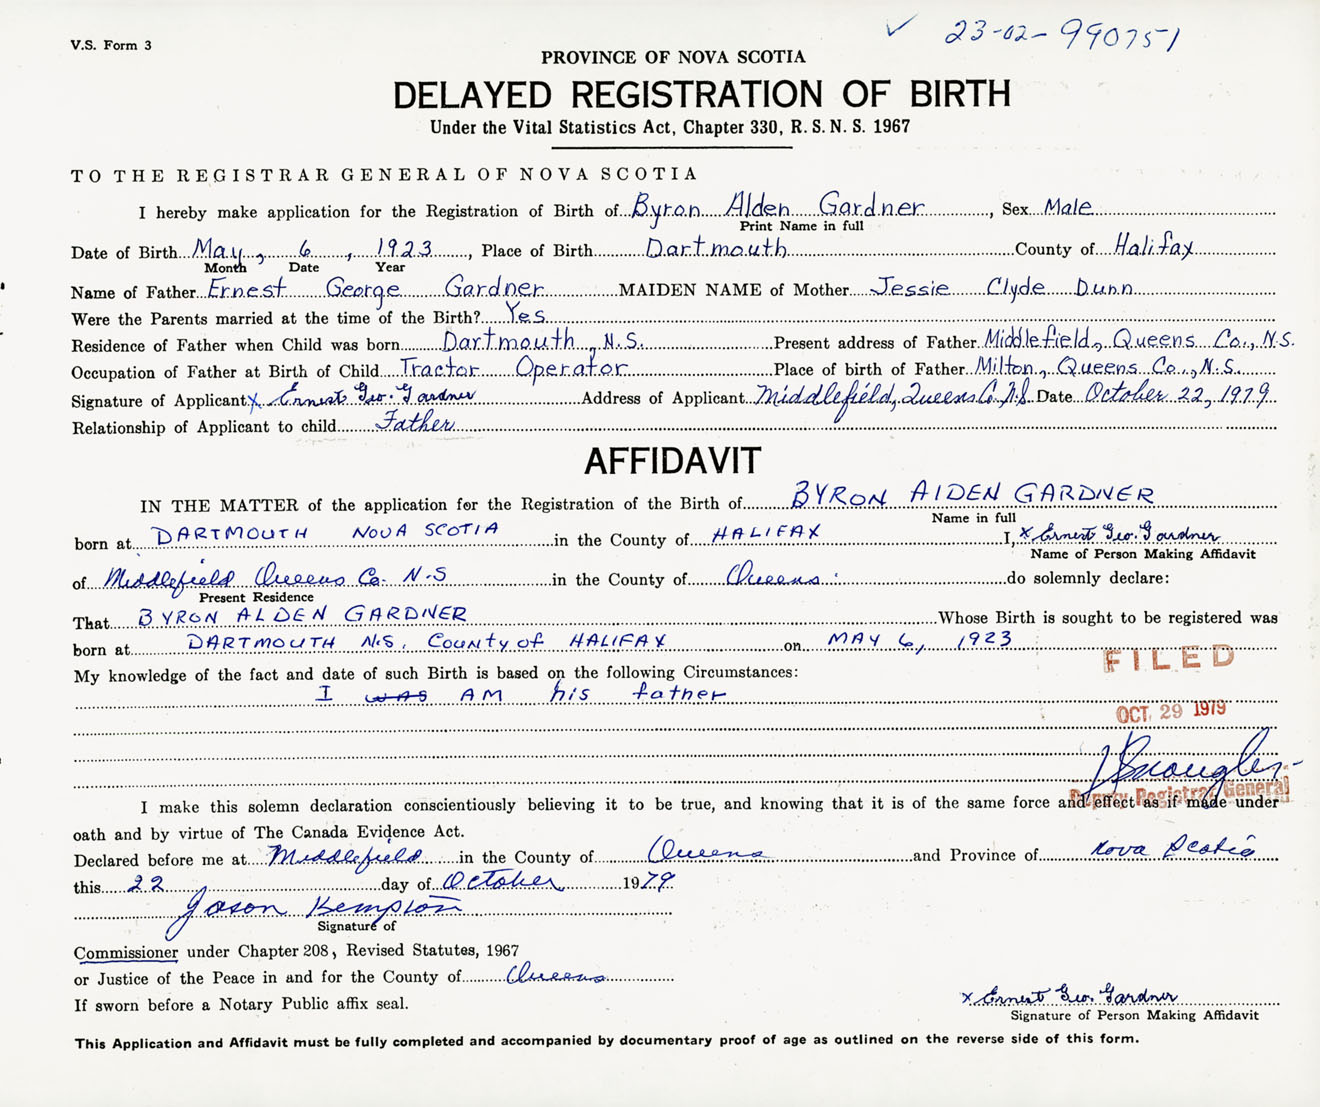 V.S. Form 3
✓ 23-02-990751
PROVINCE OF NOVA SCOTIA
DELAYED REGISTRATION OF BIRTH
Under the Vital Statistics Act, Chapter 330, R. S. N. S. 1967
TO THE REGISTRAR GENERAL OF NOVA SCOTIA
I hereby make application for the Registration of Birth of Byron Alden Gardner, Sex Male
Print Name in full
Date of Birth May, 6, 1923, Place of Birth Dartmouth County of Halifax
Month Date Year
Name of Father Ernest George Gardner MAIDEN NAME of Mother Jessie Clyde Dunn
Were the Parents married at the time of the Birth? Yes
Residence of Father when Child was born Dartmouth, N.S. Present address of Father Middlefield, Queens Co., N.S.
Occupation of Father at Birth of Child Tractor Operator Place of birth of Father Milton, Queens Co., N.S.
Signature of Applicant x Ernest Geo. Gardner Address of Applicant Middlefield, Queens Co., N.S. Date October 22, 1979
Relationship of Applicant to child Father
AFFIDAVIT
IN THE MATTER of the application for the Registration of the Birth of BYRON AlDEN GARDNER
Name in full
born at DARTMOUTH NOVA SCOTIA in the County of HALIFAX I, x Ernest Geo. Gardner
Name of Person Making Affidavit
of Middlefield Queens Co. N-S in the County of Queens do solemnly declare:
Present Residence
That BYRON ALDEN GARDNER Whose Birth is sought to be registered was
born at DARTMOUTH N.S. COUNTY OF HALIFAX on MAY 6, 1923
FILED
My knowledge of the fact and date of such Birth is based on the following Circumstances:
I WAS AM his father
OCT. 29 1979
Deputy Registrar General
I make this solemn declaration conscientiously believing it to be true, and knowing that it is of the same force and effect as if made under
oath and by virtue of The Canada Evidence Act.
Declared before me at Middlefield in the County of Queens and Province of Nova Scotia
this 22 day of October 1979
Jason Kempton
Signature of
Commissioner under Chapter 208, Revised Statutes, 1967
or Justice of the Peace in and for the County of Queens
If sworn before a Notary Public affix seal.
x Ernest Geo. Gardner
Signature of Person Making Affidavit
This Application and Affidavit must be fully completed and accompanied by documentary proof of age as outlined on the reverse side of this form.